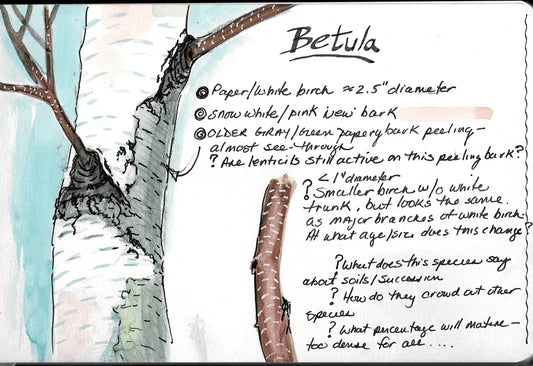 Betula
Paper/white birch ≈ 2.5" diameter
Snow white/pink new bark
OLDER GRAY/Green papery bark peeling-
almost see-through
? Are lenticils still active on this peeling bark?
< 1" diameter
? Smaller birch w/o white
trunk, but looks the same.
as major branches of white birch
At what age/size does this change?
? What does this species say
about soils/succession
? How do they crowd out other
species
? What percentage will mature -
too dense for all....